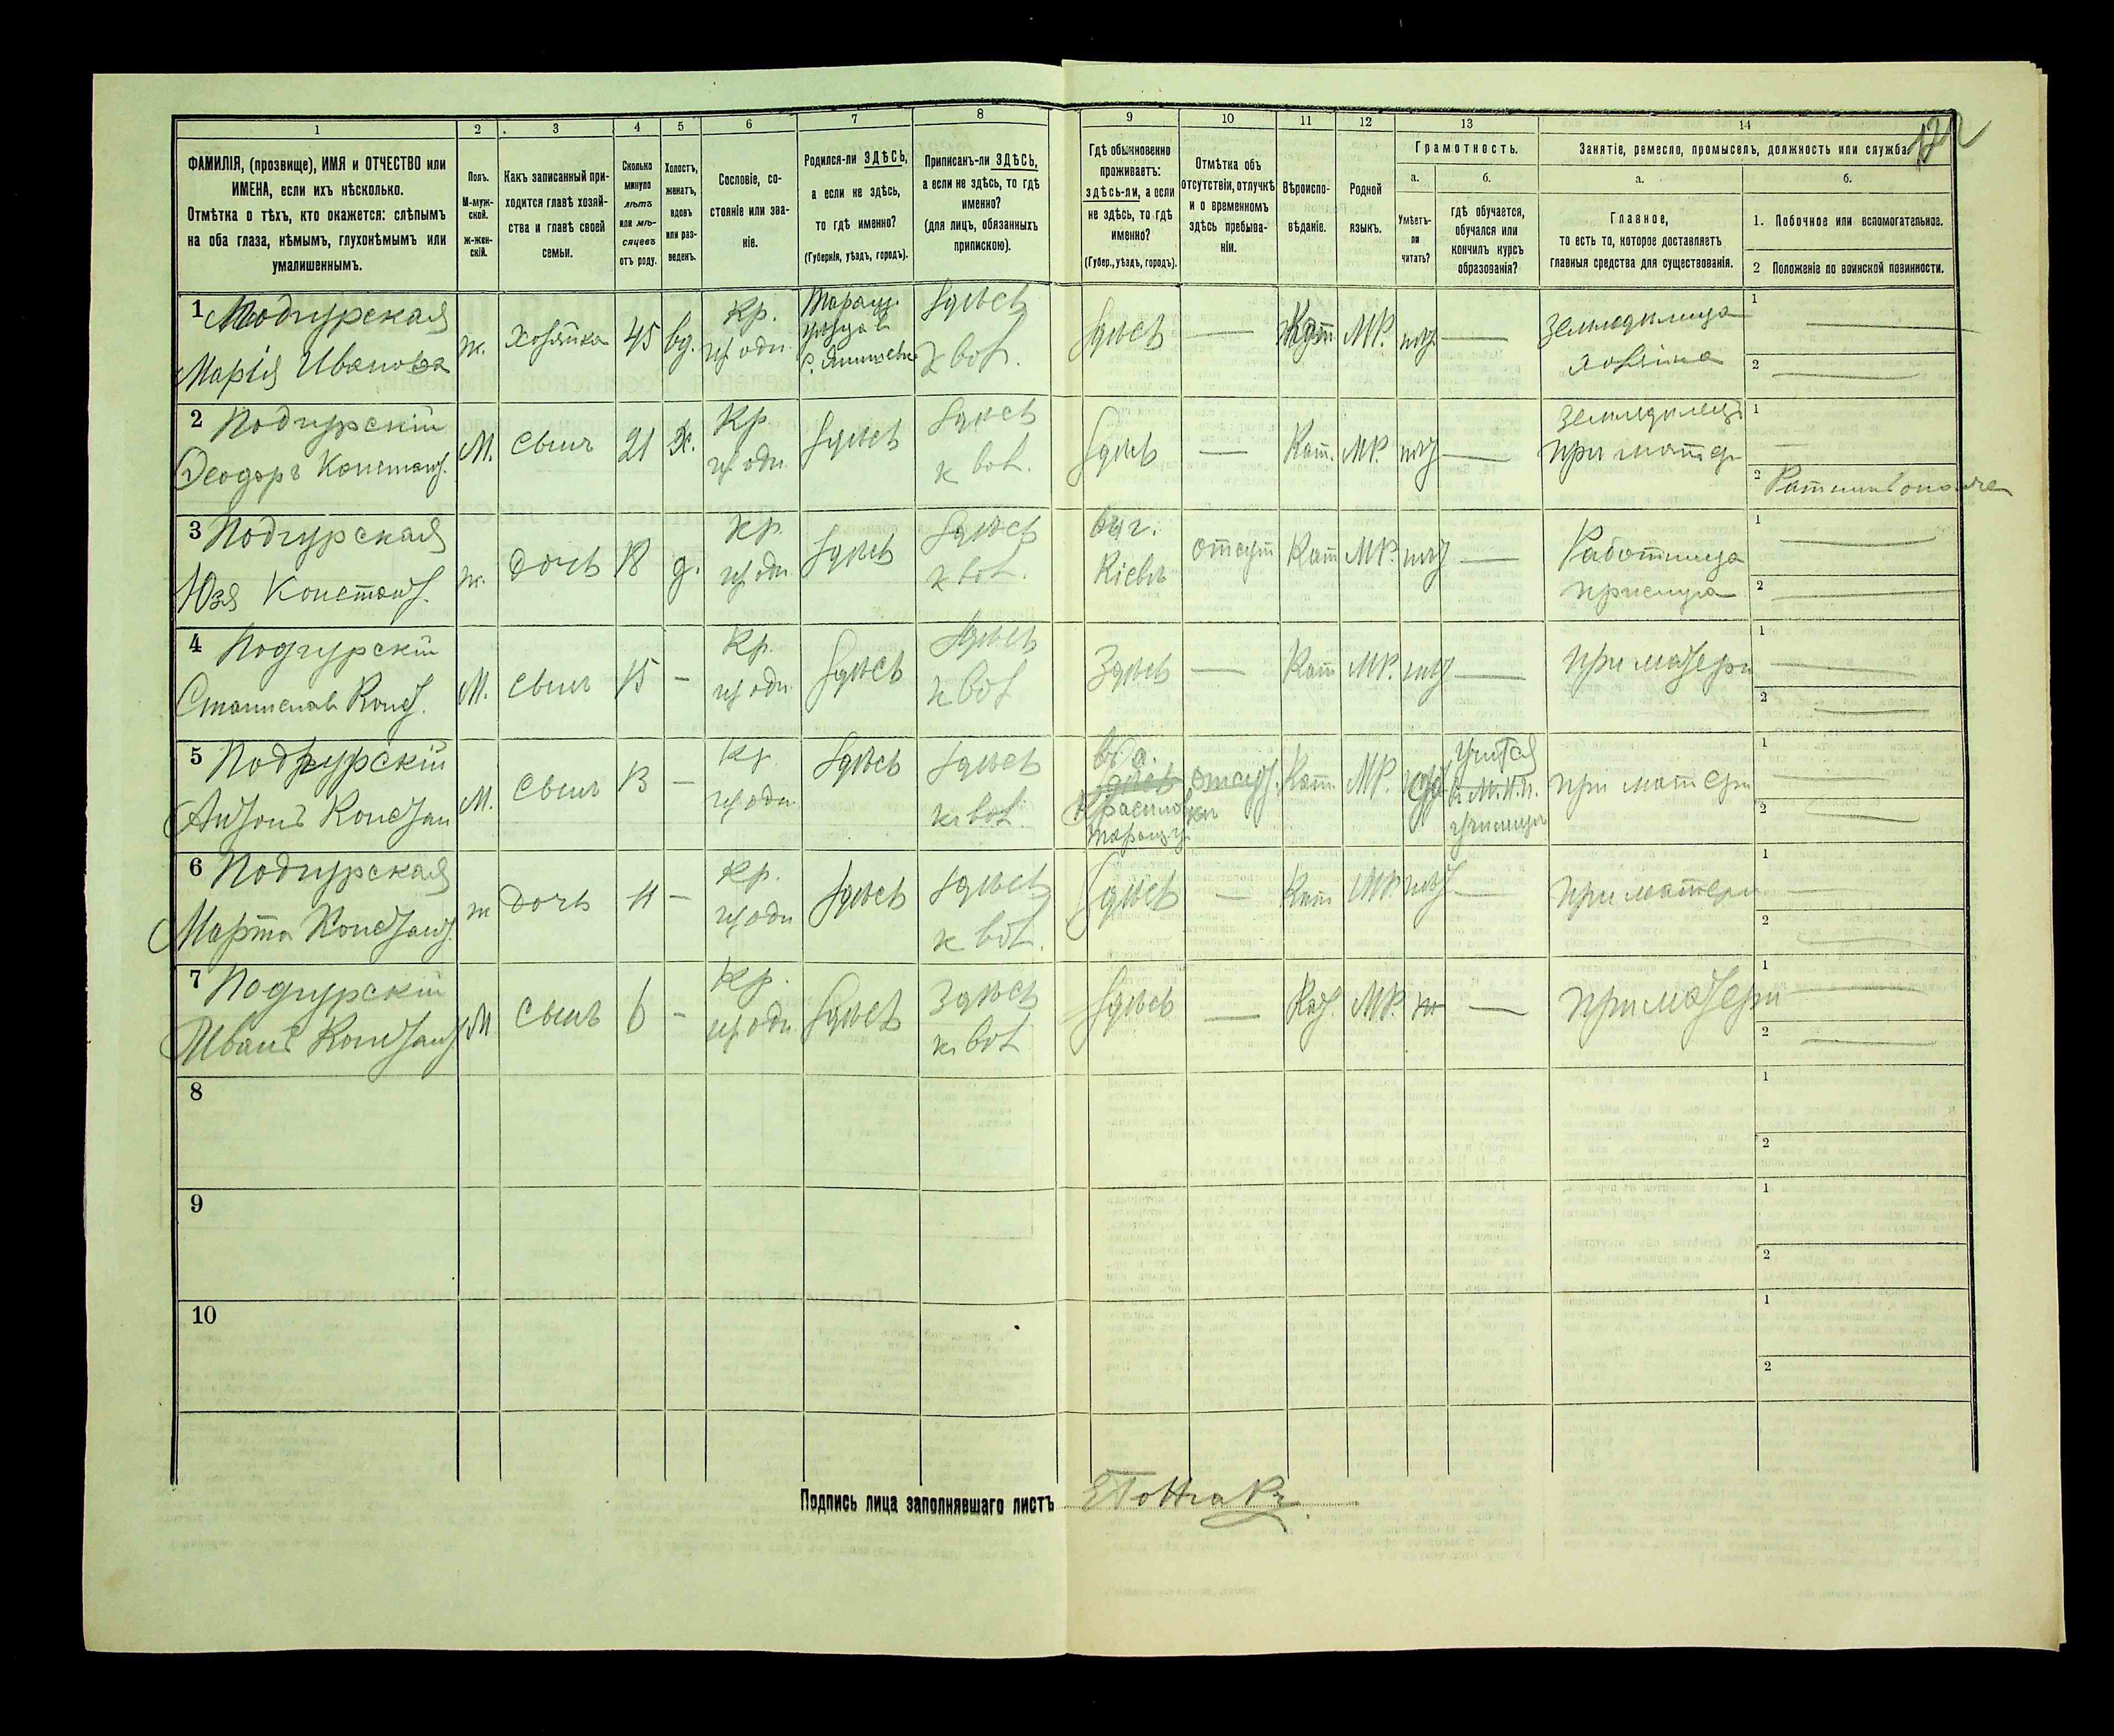 1
2
3
4
5
6
7
8
9
10
11
12
13
14
132
ФАМИЛІЯ, (прозвище), ИМЯ и ОТЧЕСТВО или
ИМЕНА, если ихъ нѣсколько.
Отмѣтка о тѣхъ, кто окажется: слѣпымъ
на оба глаза, нѣмымъ, глухонѣмымъ или
умалишеннымъ.
Полъ.
М-муж-
ской.
ж-жен-
скій.
Какъ записанный при-
ходится главѣ хозяй-
ства и главѣ своей
семьи.
Сколько
минуло
лѣтъ
или мѣ-
сяцевъ
отъ роду.
Холостъ,
женатъ,
вдовъ
или раз-
веденъ.
Сословіе, со-
стояніе или зва-
ніе.
Родился-ли ЗДѢСЬ,
а если не здѣсь,
то гдѣ именно?
(Губернія, уѣздъ, городъ).
Приписанъ-ли ЗДѢСЬ,
а если не здѣсь, то гдѣ
именно?
(для лицъ, обязанныхъ
припискою).
Гдѣ обыкновенно
проживаетъ:
здѣсь-ли, а если
не здѣсь, то гдѣ
именно?
(Губер., уѣздъ, городъ).
Отмѣтка объ
отсутствіи, отлучкѣ
и о временномъ
здѣсь пребыва-
ніи.
Вѣроиспо-
вѣданіе.
Родной
языкъ.
Грамотность.
а.
Умѣетъ-
ли
читать?
б.
гдѣ обучается,
обучался или
кончилъ курсъ
образованія?
Занятіе, ремесло, промыселъ, должность или служба.
а.
Главное,
то есть то, которое доставляетъ
главныя средства для существованія.
б.
1. Побочное или вспомогательное.
2 Положеніе по воинской повинности.
1 Подгурская
Марія Иванова
ж.
Хозяйка
45
вд.
Кр.
Здѣсь
Здѣсь
—
Кат
МР.
—
хозяйка
1
2
2 Подгурскій
Ѳеодоръ Констант.
М.
Сынъ
21
Х.
Кр
Здѣсь
Здѣсь
Здѣсь
—
Кат.
МР.
—
при матери
1
2
3 Подгурская
Юзя Констант.
ж.
Дочь
18
д.
Кр.
Здѣсь
Здѣсь
въ г.
Кіевъ
отсут
Кат
МР.
—
Работница
прислуга
1
2
4 Подгурскій
Станиславъ Конст.
М.
Сынъ
15
—
Кр.
Здѣсь
Здѣсь
Здѣсь
—
Кат
МР.
—
при матери
1
2
5 Подгурскій
Антонъ Констан
М.
Сынъ
13
—
Кр.
Здѣсь
Здѣсь
отсут.
Кат.
МР.
Учится
при матери
1
2
6 Подгурская
Марта Констант.
ж
Дочь
11
—
Кр.
Здѣсь
Здѣсь
Здѣсь
—
Кат
МР.
—
при матери
1
2
7 Подгурскій
Иванъ Констант
М
Сынъ
6
—
Кр.
Здѣсь
Здѣсь
Здѣсь
—
Кат.
МР.
—
при матери
1
2
8
1
2
9
1
2
10
1
2
Подпись лица заполнявшаго листъ